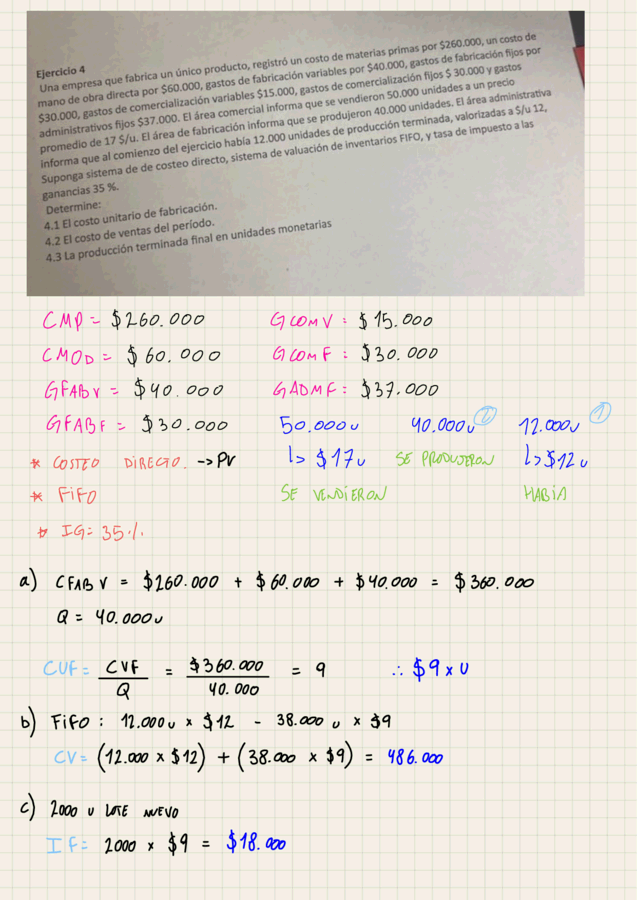 Ejercicio 4
Una empresa que fabrica un único producto, registró un costo de materias primas por $260.000, un costo de
mano de obra directa por $60.000, gastos de fabricación variables por $40.000, gastos de fabricación fijos por
$30.000, gastos de comercialización variables $15.000, gastos de comercialización fijos $ 30.000 y gastos
administrativos fijos $37.000. El área comercial informa que se vendieron 50.000 unidades a un precio
promedio de 17 $/u. El área de fabricación informa que se produjeron 40.000 unidades. El área administrativa
informa que al comienzo del ejercicio había 12.000 unidades de producción terminada, valorizadas a $/u 12,
Suponga sistema de de costeo directo, sistema de valuación de inventarios FIFO, y tasa de impuesto a las
ganancias 35 %.
Determine:
4.1 El costo unitario de fabricación.
4.2 El costo de ventas del período.
4.3 La producción terminada final en unidades monetarias
CMP = $260.000 GCOMV : $15.000
CMOD = $60.000 GCOMF : $30.000
GFABV = $40.000 GADMF : $37.000
GFABF = $30.000 50.000u 40.000u 2 12.000u 1
* COSTEO DIRECTO. -> PV ↳ $17u SE PRODUJERON ↳ $12u
* FIFO SE VENDIERON HABIA
* IG = 35%
a) CFABV = $260.000 + $60.000 + $40.000 = $360.000
Q = 40.000u
CUF = CVF / Q = $360.000 / 40.000 = 9 ∴ $9 x U
b) FIFO : 12.000u x $12 - 38.000 u x $9
CV = (12.000 x $12) + (38.000 x $9) = 486.000
c) 2000 U LOTE NUEVO
IF = 2000 x $9 = $18.000